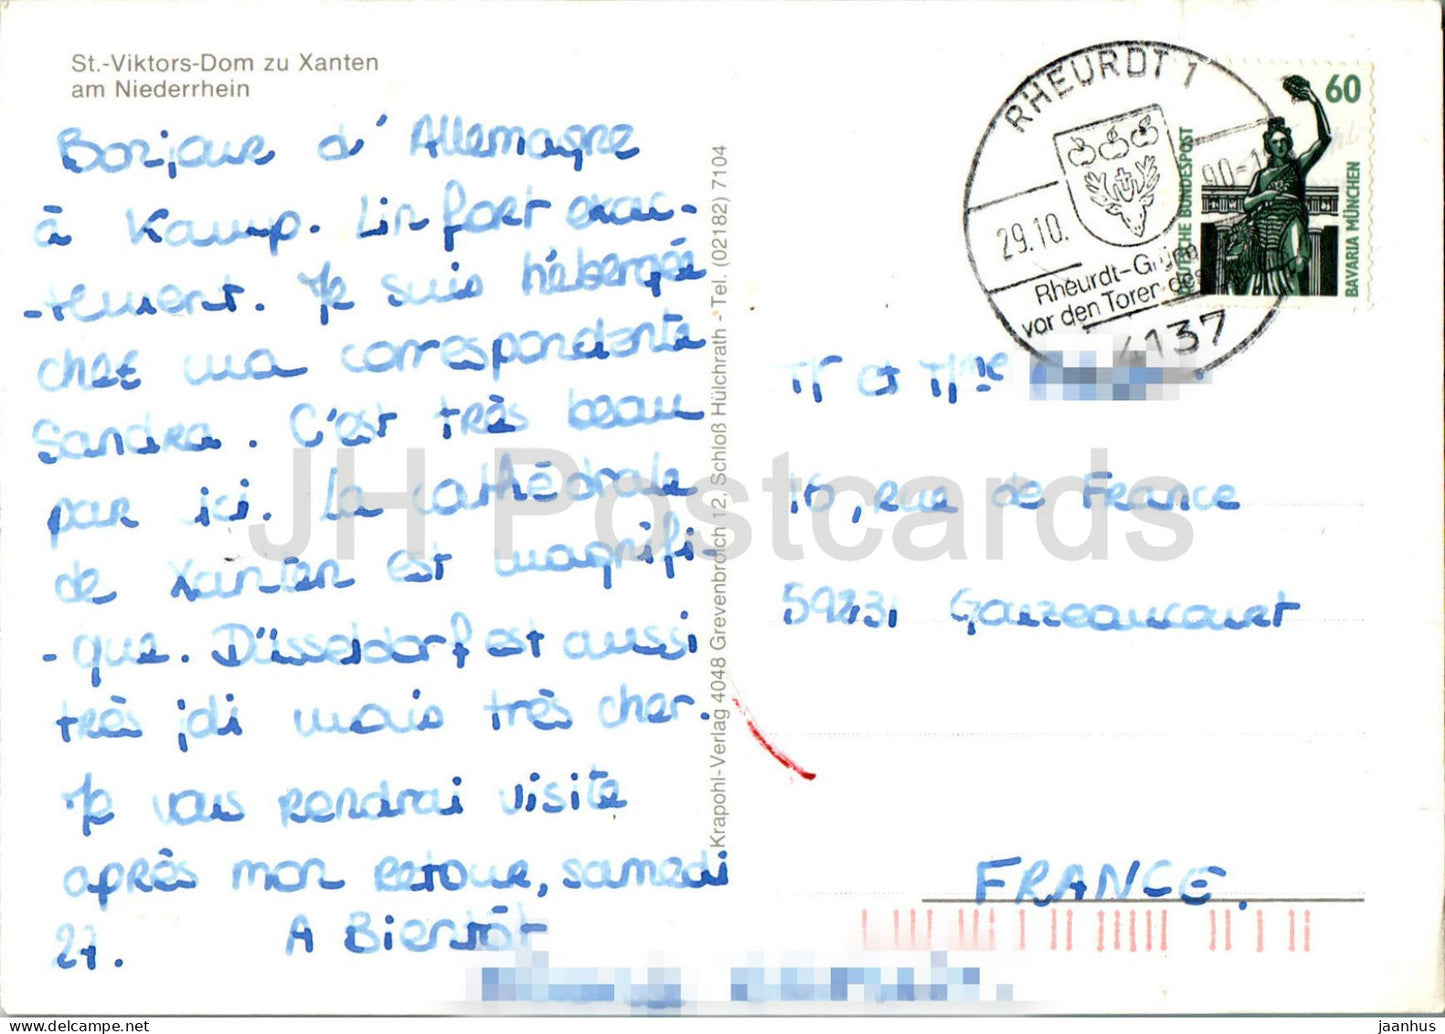 St.-Viktors-Dom zu Xanten
am Niederrhein
Bonjour d'Allemagne
à Kamp. Linfort exac-
-tement. Je suis hébergée
chez ma correspondante
Sandra. C'est très beau
par ici. La cathédrale
de Xanten est magnifi-
-que. Düsseldorf est aussi
très joli mais très cher.
Je vous rendrai visite
après mon retour, samedi
27. A Bientôt
Krapohl-Verlag 4048 Grevenbroich 12, Schloß Hülchrath - Tel. (02182) 7104
RHEURDT 1
29.10.
90-1
Rheurdt-
vor den Toren des
4137
60
DEUTSCHE BUNDESPOST
BAVARIA MÜNCHEN
Mr et Mme
16, rue de France
59231 Gouzeaucourt
FRANCE.
JH Postcards
jaanhus @ delcampe.net